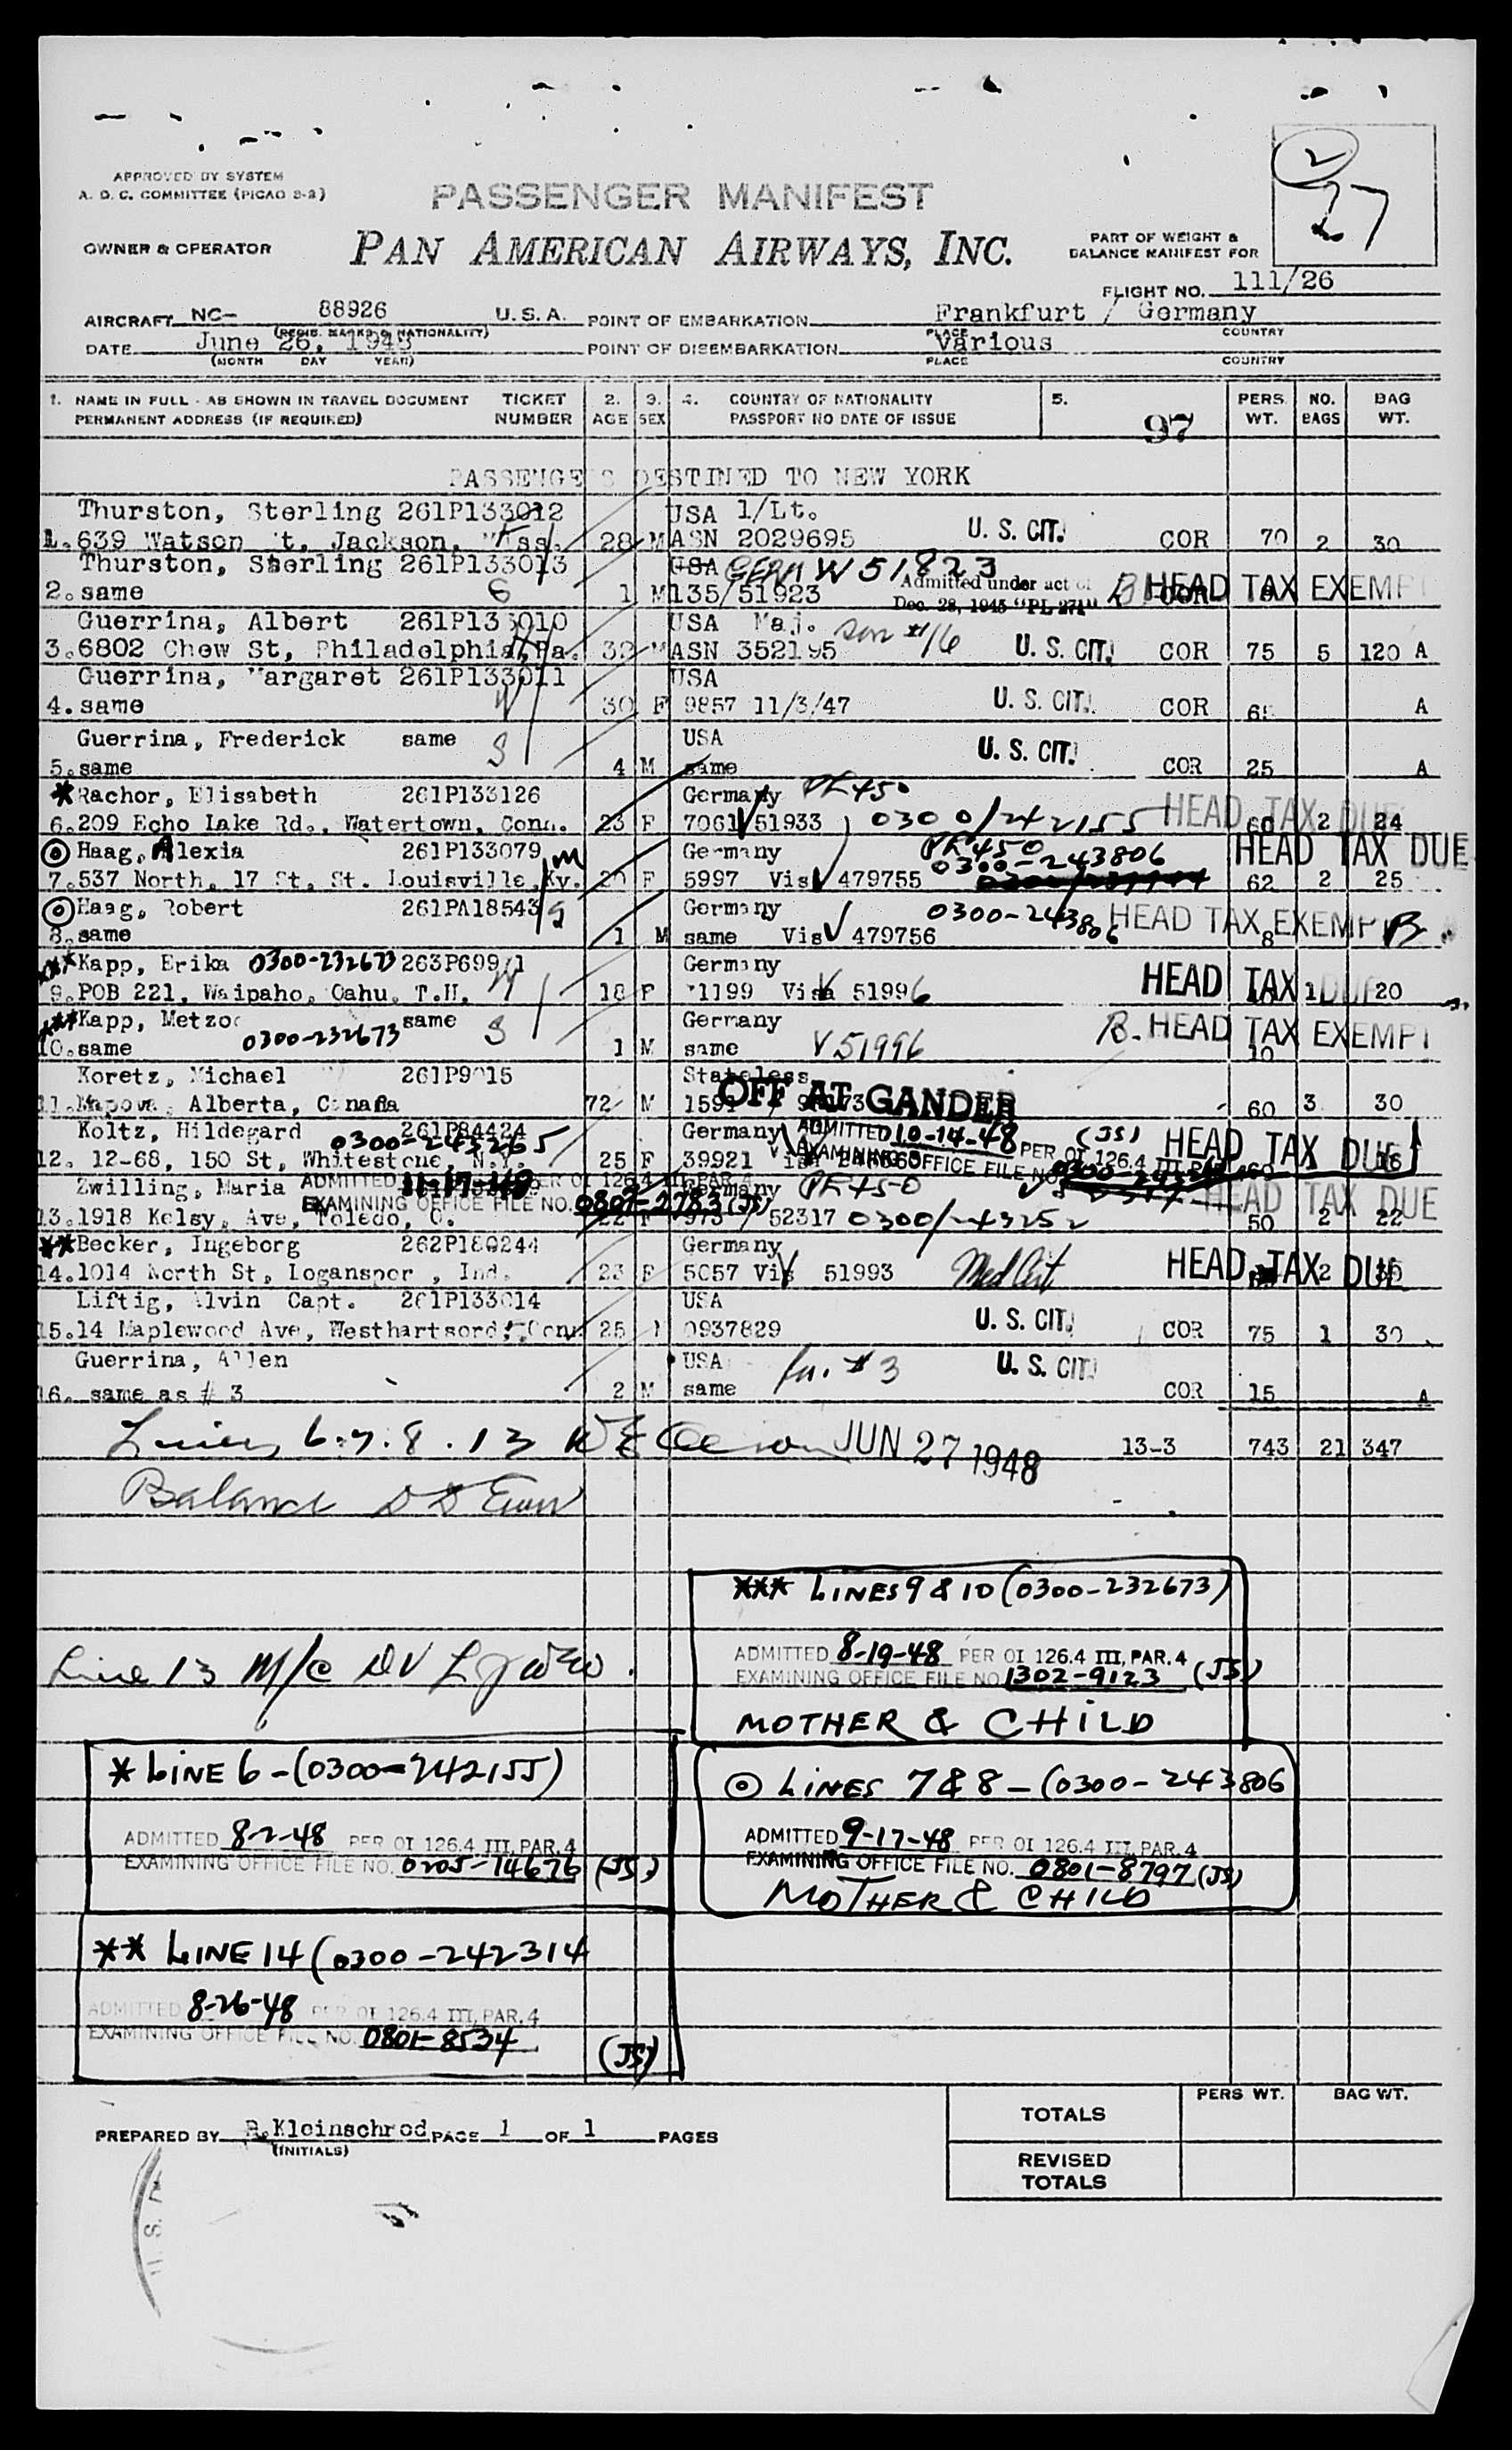 2
27
APPROVED BY SYSTEM
A. D. C. COMMITTEE (PICAO 2-2)
PASSENGER MANIFEST
OWNER & OPERATOR
PAN AMERICAN AIRWAYS, INC.
PART OF WEIGHT &
BALANCE MANIFEST FOR
FLIGHT NO. 111/26
AIRCRAFT NC- 88926 U.S.A. POINT OF EMBARKATION Frankfurt / Germany
(REGIS. MARKS & NATIONALITY) PLACE COUNTRY
DATE June 26, 1948 POINT OF DISEMBARKATION Various
(MONTH DAY YEAR) PLACE COUNTRY
1. NAME IN FULL - AS SHOWN IN TRAVEL DOCUMENT TICKET 2. 3. 4. COUNTRY OF NATIONALITY 5. PERS. NO. BAG
PERMANENT ADDRESS (IF REQUIRED) NUMBER AGE SEX PASSPORT NO DATE OF ISSUE 97 WT. BAGS WT.
PASSENGERS DESTINED TO NEW YORK
Thurston, Sterling 261P133012 USA 1/Lt.
1. 639 Watson St, Jackson, Miss. 28 M ASN 2029695 U. S. CIT. COR 70 2 30
Thurston, Sterling 261P133013 USA GERM W 51823
2. same 1 M 135/51923 Admitted under act of Dec. 28, 1945 "PL 271" COR HEAD TAX EXEMPT
Guerrina, Albert 261P133010 USA Maj.
3. 6802 Chew St, Philadelphia, Pa. 32 M ASN 352195 U. S. CIT. COR 75 5 120 A
Guerrina, Margaret 261P133011 USA
4. same 30 F 9857 11/3/47 U. S. CIT. COR A
Guerrina, Frederick same S USA
5. same 4 M same U. S. CIT. COR 25 A
* Rachor, Elisabeth 261P133126 Germany PL450
6. 209 Echo Lake Rd., Watertown, Conn. 23 F 7061 51933 0300/242155 HEAD TAX DUE 60 2 24
Haag, Alexia 261P133079 M Germany PL450 HEAD TAX DUE
7. 537 North, 17 St, St. Louisville, Ky. 20 F 5997 Vis 479755 0300-243806 62 2 25
Haag, Robert 261PA18543 S Germany 0300-243806 HEAD TAX EXEMPT
8. same 1 M same Vis 479756 8
*** Kapp, Erika 0300-232673 263P69941 Germany
9. POB 221, Waipaho, Oahu, T.H. 18 F 71199 Visa 51996 HEAD TAX DUE 1 20
*** Kapp, same S Germany
10. same 0300-232673 1 M same V 51996 HEAD TAX EXEMPT 10
Koretz, Michael 261P9015 Stateless OFF AT GANDER
11. Alberta, Canada 72 M 60 3 30
Koltz, Hildegard 261P84424 0300-243265 Germany ADMITTED 10-14-48 PER OI 126.4 III, PAR. (JS) HEAD TAX DUE
12. 12-68, 150 St, Whitestone, N.Y. 25 F 39921 EXAMINING OFFICE FILE NO.
Zwilling, Maria ADMITTED 11-17-48 PER OI 126.4 III, PAR. 4 Germany PL450 HEAD TAX DUE
EXAMINING OFFICE FILE NO. 0807-2783 (JS)
13. 1918 Kelsy, Ave, Toledo, O. 22 F 973 / 52317 0300/243252 50 2 22
** Becker, Ingeborg 262P180244 Germany
14. 1014 North St, Logansport, Ind. 23 F 5057 Vis 51993 Med Cert HEAD TAX DUE 2
Liftig, Alvin Capt. 261P133014 USA
15. 14 Maplewood Ave, Westhartsord, Conn 25 M 0937829 U. S. CIT. COR 75 1 30
Guerrina, Allen USA #3 U. S. CIT.
16. same as # 3 2 M same COR 15 A
Lines 6.7.8.13 JUN 27 1948 13-3 743 21 347
Balance
*** LINES 9 & 10 (0300-232673)
ADMITTED 8-19-48 PER OI 126.4 III, PAR. 4
EXAMINING OFFICE FILE NO. 1302-9123 (JS)
MOTHER & CHILD
Line 13 M/C
* LINE 6-(0300-242155)
ADMITTED 8-2-48 PER OI 126.4 III, PAR. 4
EXAMINING OFFICE FILE NO. 0205-14676 (JS)
LINES 7 & 8 - (0300-243806
ADMITTED 9-17-48 PER OI 126.4 III, PAR. 4
EXAMINING OFFICE FILE NO. 0801-8797 (JS)
MOTHER & CHILD
** LINE 14 (0300-242314
ADMITTED 8-26-48 PER OI 126.4 III, PAR. 4
EXAMINING OFFICE FILE NO. 0801-8534
(JS)
PERS WT. BAG WT.
TOTALS
PREPARED BY R. Kleinschrod PAGE 1 OF 1 PAGES
(INITIALS)
REVISED
TOTALS